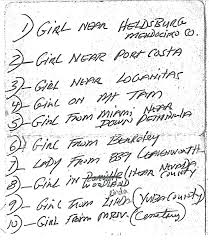 1) GIRL NEAR HELDSBURG
MENDOCINO CO.
2) - GIRL NEAR PORT COSTA
3) - GIRL NEAR LAGANITAS
4) GIRL ON MT TAM
5 - GIRL FROM MIAMI NEAR
DOWN PENINSULA
6) - GIRL FROM BERKELEY
7 - LADY FROM 839 LEAVENWORTH
8) - GIRL IN (NEAR NEVADA
WOODLAND COUNTY
9) - GIRL FROM LINDA (YUBA COUNTY)
10) - GIRL FROM MRSV. (CEMETERY)